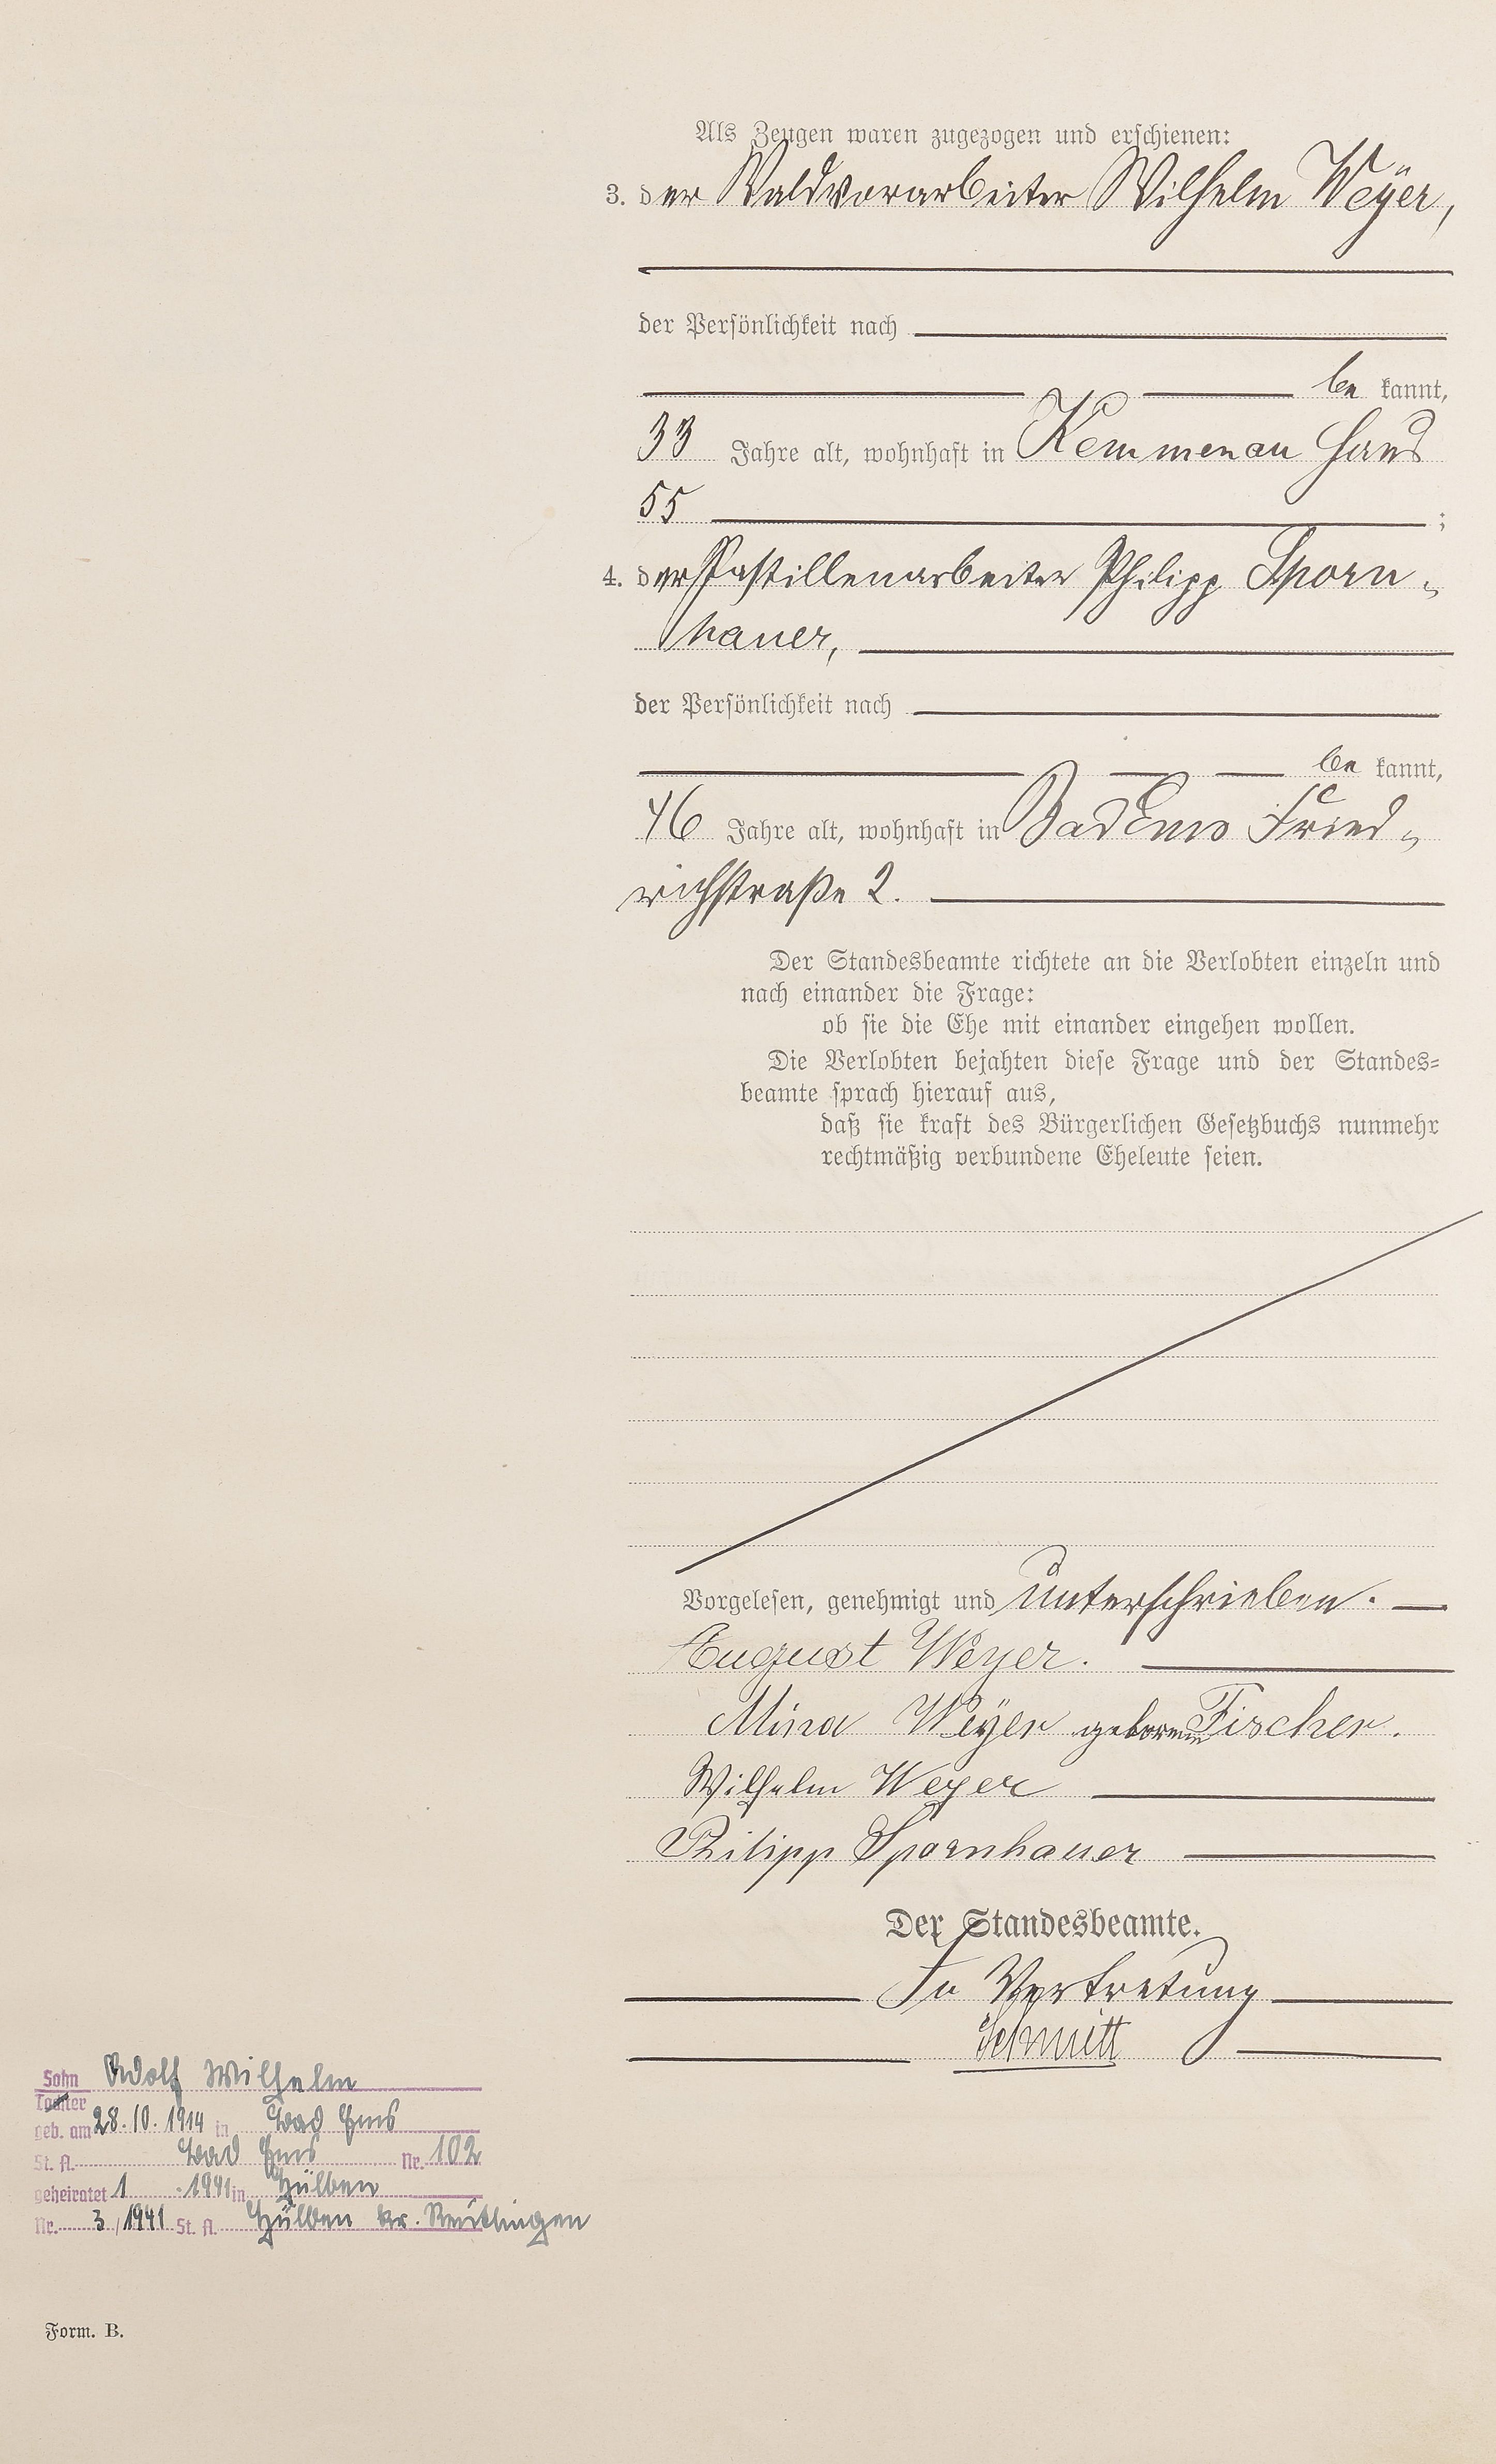 Als Zeugen waren zugezogen und erschienen:
3. der Waldvorarbeiter Wilhelm Weÿer,
der Persönlichkeit nach
be kannt,
33 Jahre alt, wohnhaft in Kemmenau Haus
55 ;
4. der Pastillenarbeiter Philipp Sporn-
hauer,
der Persönlichkeit nach
be kannt,
46 Jahre alt, wohnhaft in Bad Ems Fried-
richstraße 2.
Der Standesbeamte richtete an die Verlobten einzeln und
nach einander die Frage:
ob sie die Ehe mit einander eingehen wollen.
Die Verlobten bejahten diese Frage und der Standes-
beamte sprach hierauf aus,
daß sie kraft des Bürgerlichen Gesetzbuchs nunmehr
rechtmäßig verbundene Eheleute seien.
Vorgelesen, genehmigt und unterschrieben.
August Weyer.
Mina Weÿer geborene Fischer.
Wilhelm Weyer
Philipp Spornhauer
Der Standesbeamte.
In Vertretung
Schmitt
Sohn Adolf Wilhelm
Tochter
geb. am 28.10.1914 in Bad Ems
St. A. Bad Ems Nr. 102
geheiratet 1 . 1941 in Hülben
Nr. 3/1941 St. A. Hülben Kr. Reutlingen
Form. B.